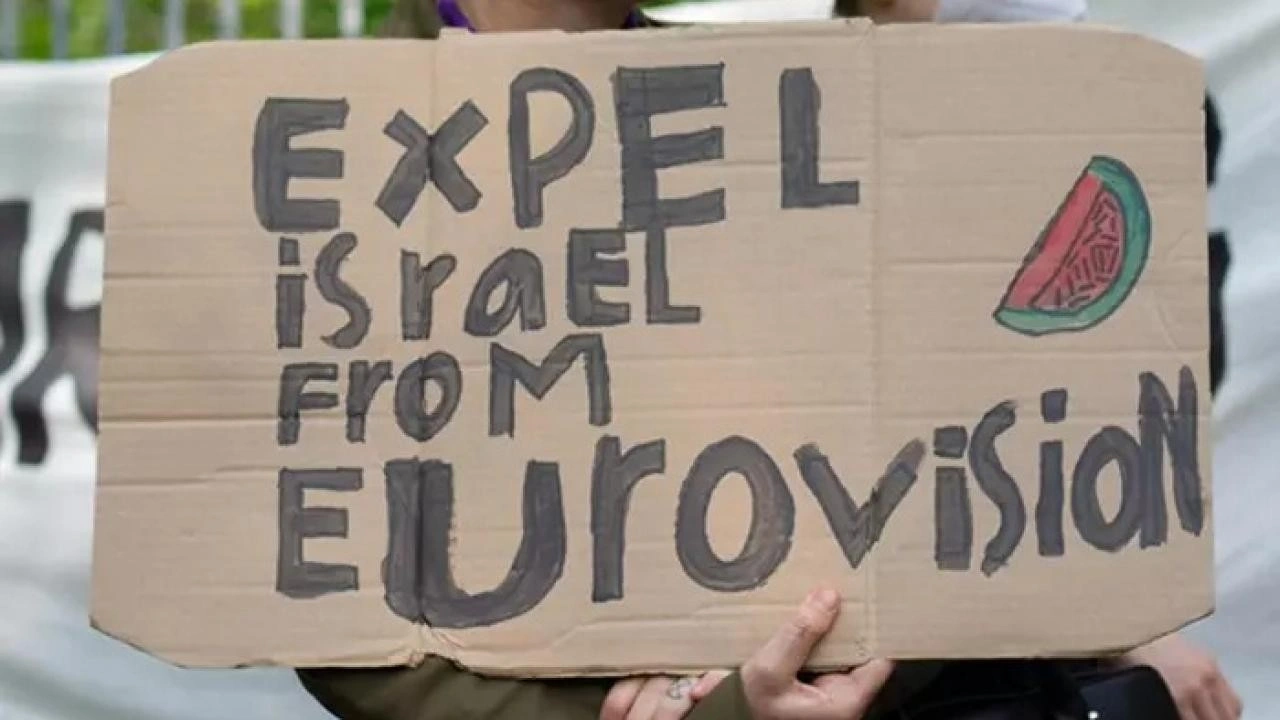 EXPEL
israEL
FroM
EUroviSioN